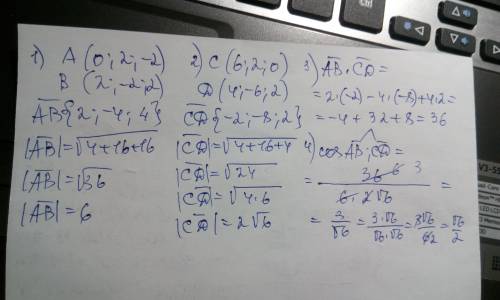 1) A (0; 2; -2)
B (2; -2; 2)
A̅B̅{2; -4; 4}
|A̅B̅|=√4+16+16
|A̅B̅|=√36
|A̅B̅|=6
2) C (6; 2; 0)
D (4; -6; 2)
C̅D̅{-2; -8; 2}
|C̅D̅|=√4+16+4
|C̅D̅|=√24
|C̅D̅|=√4·6
|C̅D̅|=2√6
3) A̅B̅·C̅D̅=
=2·(-2)-4·(-8)+4·2=
=-4+32+8=36
4) cos A̅B̅;C̅D̅=
= 36 6 3 / 6·2√6 =
= 3/√6 = 3·√6/√6·√6 = 3√6/62 = √6/2
V3-55